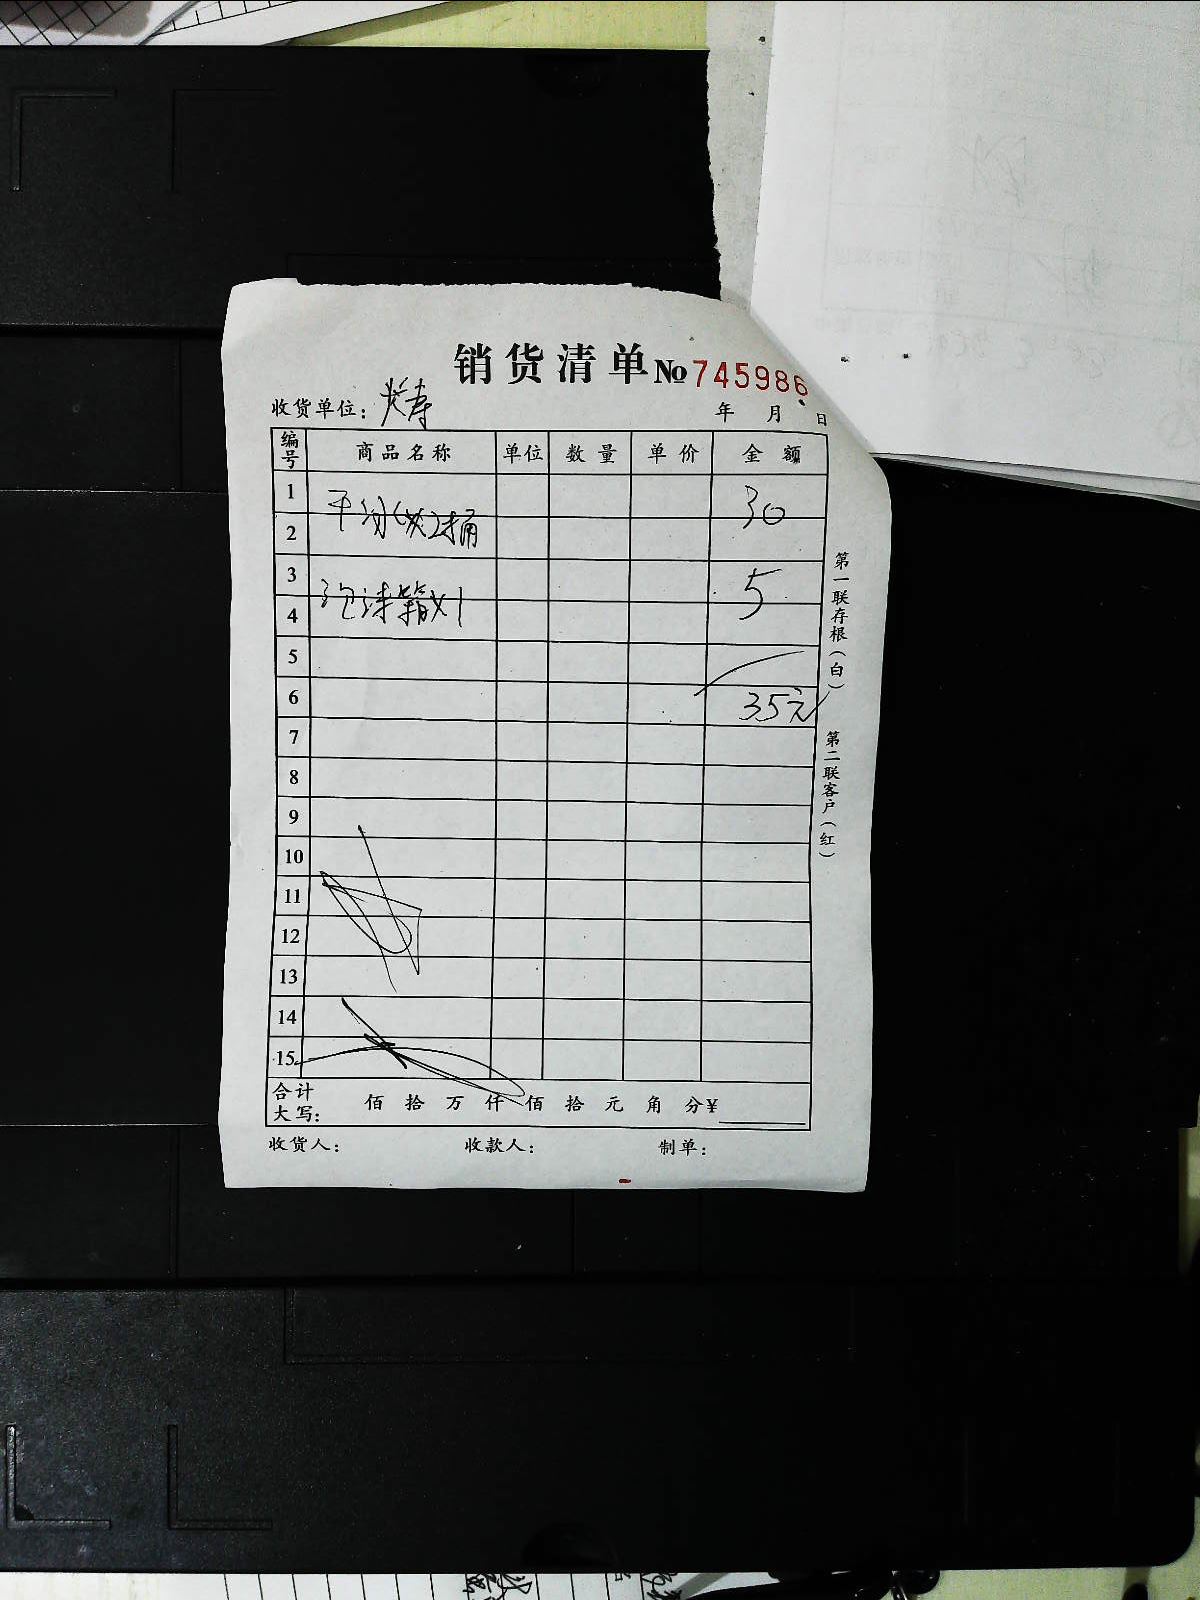 销货清单 № 745986
收货单位： 年 月 日
编号 商品名称 单位 数量 单价 金额
1 30
2 桶
3 泡沫箱x1 5
4
5
6 35元
7
8
9
10
11
12
13
14
15
合计大写： 佰 拾 万 仟 佰 拾 元 角 分 ¥
收货人： 收款人： 制单：
第一联存根（白）
第二联客户（红）